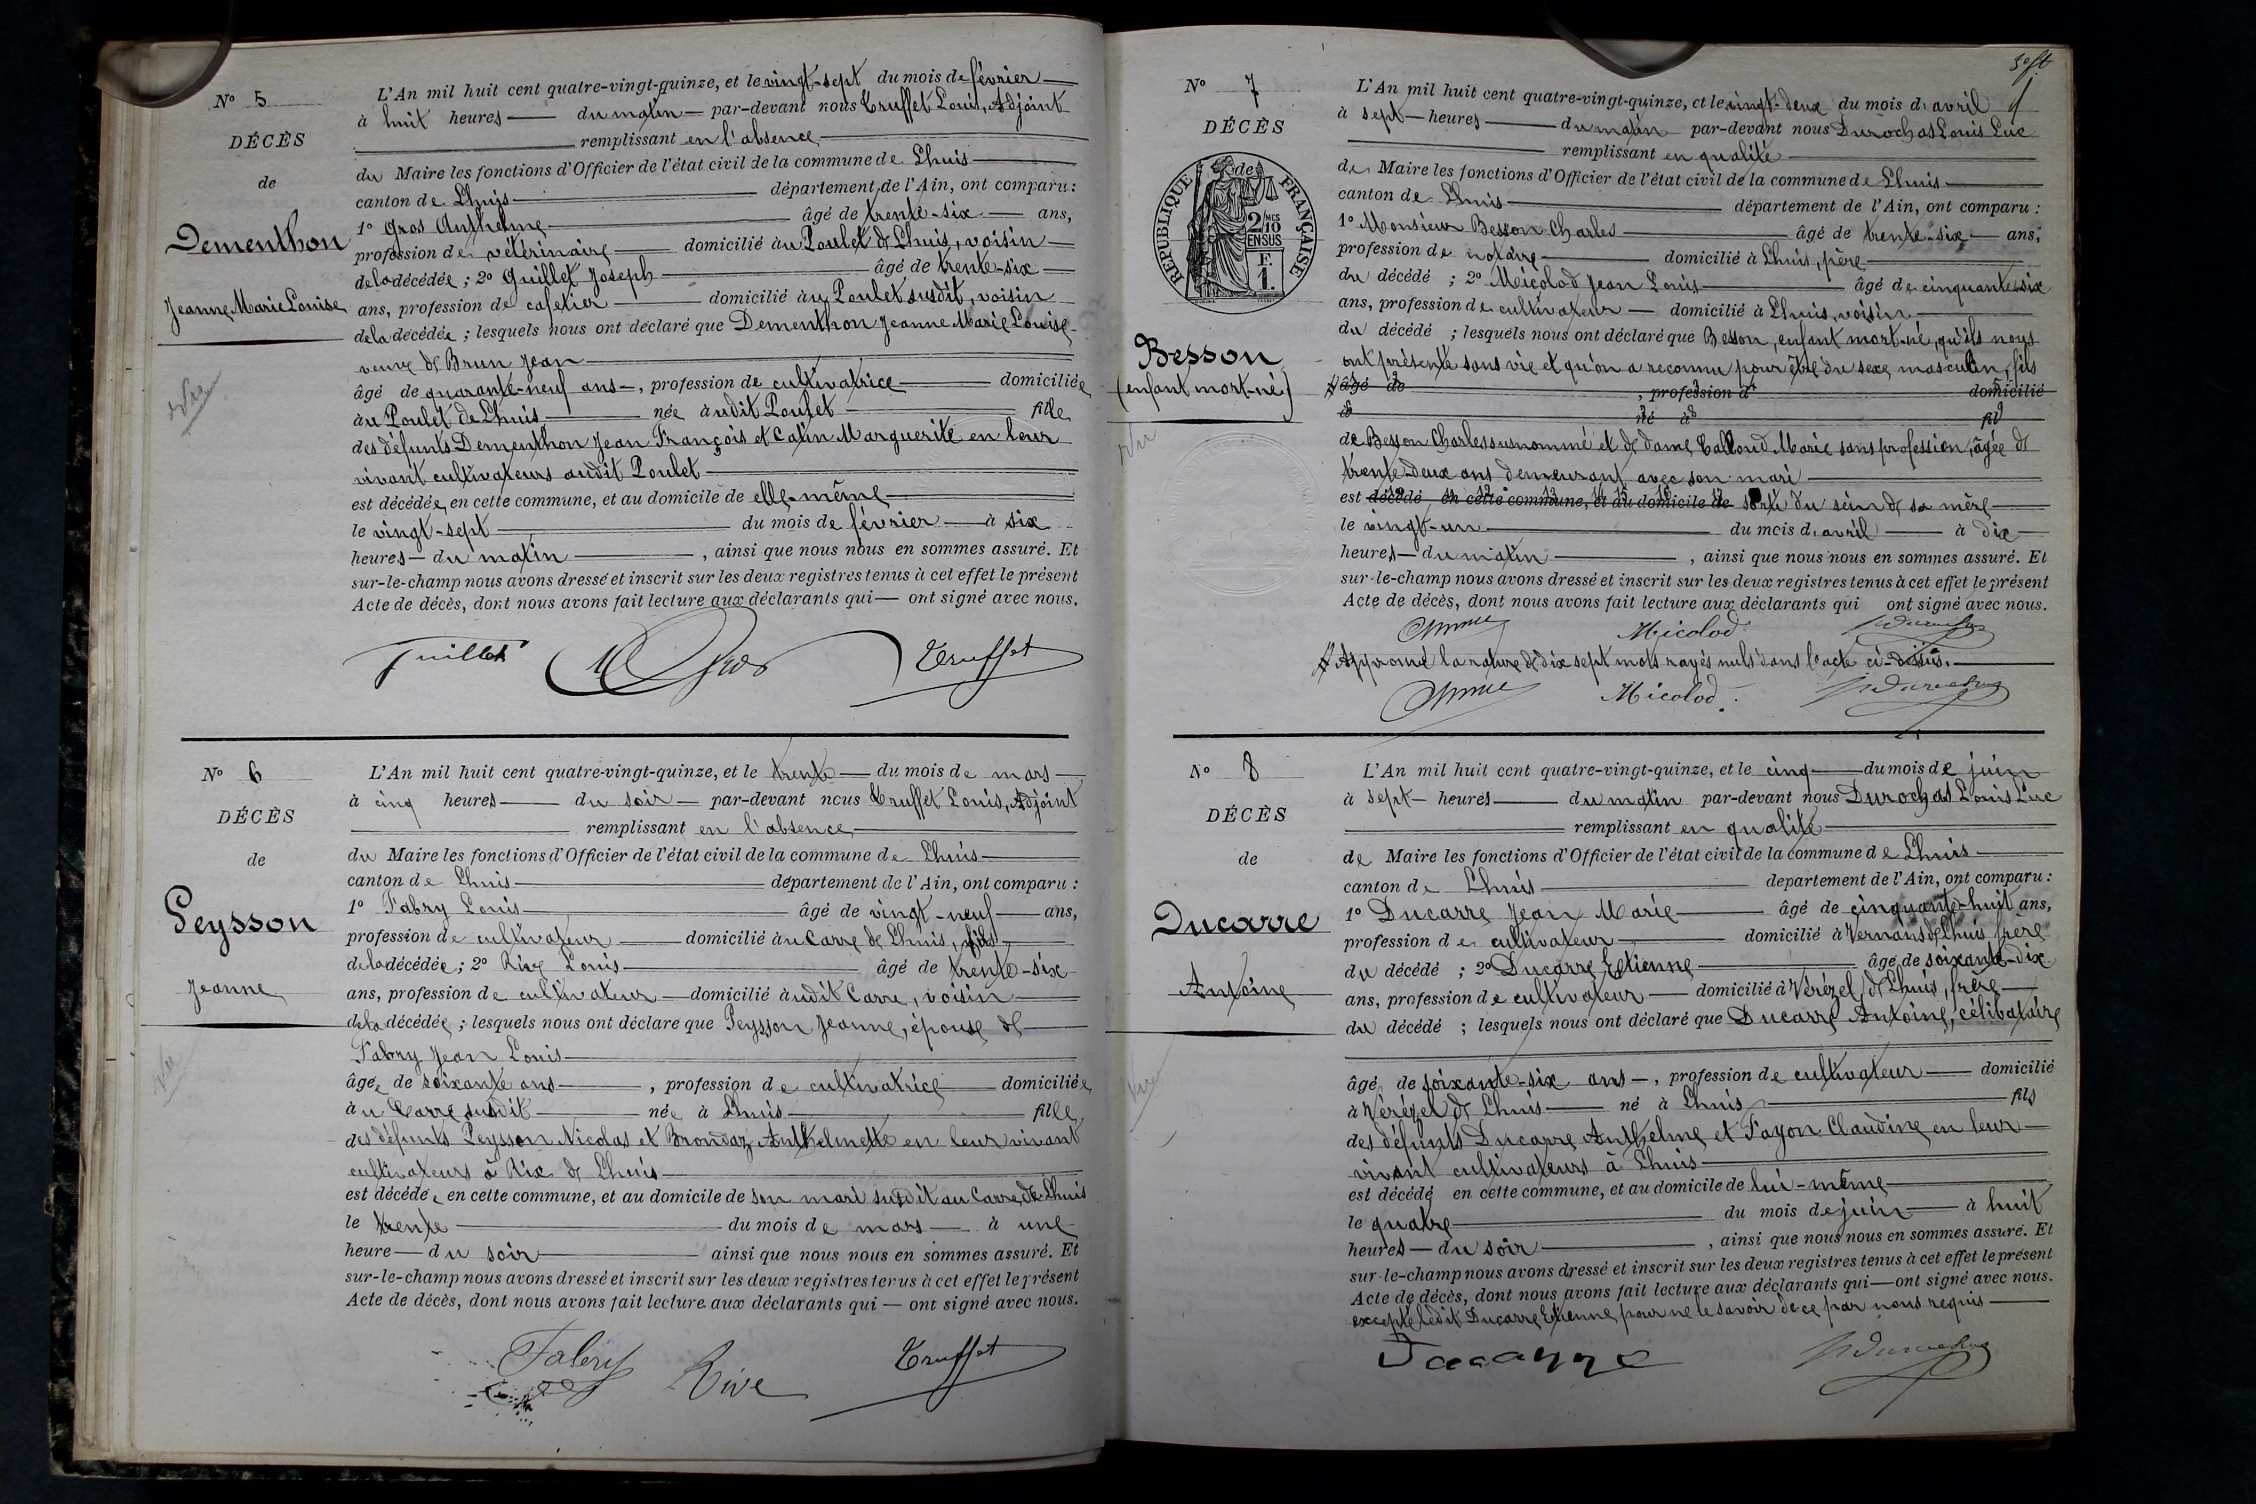 N° 5
DÉCÈS
de
Dementhon
Jeanne Marie Louise
Vu
L'An mil huit cent quatre-vingt-quinze, et le vingt-sept du mois de février
à huit heures du matin par-devant nous Truffet Louis, Adjoint
remplissant en l'absence
du Maire les fonctions d'Officier de l'état civil de la commune de Lhuis
canton de Lhuis département de l'Ain, ont comparu :
1° Gros Anthelme âgé de trente-six ans,
profession de vétérinaire domicilié au Poulet de Lhuis, voisin
de la décédée ; 2° Guillet Joseph âgé de trente-six
ans, profession de cafetier domicilié au Poulet susdit, voisin
de la décédée ; lesquels nous ont déclaré que Dementhon Jeanne Marie Louise
veuve de Brun Jean
âgé de quarante-neuf ans, profession de cultivatrice domiciliée
au Poulet de Lhuis née audit Poulet fille
des défunts Dementhon Jean François et Catin Marguerite en leur
vivant cultivateurs audit Poulet
est décédée en cette commune, et au domicile de elle-même
le vingt-sept du mois de février à six
heures du matin, ainsi que nous nous en sommes assuré. Et
sur-le-champ nous avons dressé et inscrit sur les deux registres tenus à cet effet le présent
Acte de décès, dont nous avons fait lecture aux déclarants qui ont signé avec nous.
Guillet Gros Truffet
N° 6
DÉCÈS
de
Peysson
Jeanne
Vu
L'An mil huit cent quatre-vingt-quinze, et le trente du mois de mars
à cinq heures du soir par-devant nous Truffet Louis, Adjoint
remplissant en l'absence
du Maire les fonctions d'Officier de l'état civil de la commune de Lhuis
canton de Lhuis département de l'Ain, ont comparu :
1° Fabry Louis âgé de vingt-neuf ans,
profession de cultivateur domicilié au Carre de Lhuis, fils
de la décédée ; 2° Rive Louis âgé de trente-six
ans, profession de cultivateur domicilié audit Carre, voisin
de la décédée ; lesquels nous ont déclaré que Peysson Jeanne, épouse de
Fabry Jean Louis
âgée de soixante ans, profession de cultivatrice domiciliée
au Carre susdit née à Lhuis fille
des défunts Peysson Nicolas et Brondaz Anthelmette en leur vivant
cultivateurs à Rix de Lhuis
est décédée en cette commune, et au domicile de son mari susdit au Carre de Lhuis
le trente du mois de mars à une
heure du soir ainsi que nous nous en sommes assuré. Et
sur-le-champ nous avons dressé et inscrit sur les deux registres tenus à cet effet le présent
Acte de décès, dont nous avons fait lecture aux déclarants qui ont signé avec nous.
Fabry Rive Truffet
N° 7
DÉCÈS
RÉPUBLIQUE FRANÇAISE
2/10 MES
EN SUS
F.
1.
Besson
(enfant mort-né)
Vu
L'An mil huit cent quatre-vingt-quinze, et le vingt-deux du mois d'avril
à sept heures du matin par-devant nous Durochas Louis Luc
remplissant en qualité
de Maire les fonctions d'Officier de l'état civil de la commune de Lhuis
canton de Lhuis département de l'Ain, ont comparu :
1° Monsieur Besson Charles âgé de trente-six ans,
profession de notaire domicilié à Lhuis, père
du décédé ; 2° Micolod Jean Louis âgé de cinquante-six
ans, profession de cultivateur domicilié à Lhuis, voisin
du décédé ; lesquels nous ont déclaré que Besson, enfant mort-né, qu'ils nous
ont présenté sans vie et qu'on a reconnu pour être du sexe masculin, fils
âgé de , profession d domicilié
à né à fil
de Besson Charles susnommé et de dame Calloud Marie sans profession, âgée de
trente-deux ans demeurant avec son mari
est décédé en cette commune, et au domicile de sorti du sein de sa mère
le vingt-un du mois d'avril à dix
heures du matin, ainsi que nous nous en sommes assuré. Et
sur-le-champ nous avons dressé et inscrit sur les deux registres tenus à cet effet le présent
Acte de décès, dont nous avons fait lecture aux déclarants qui ont signé avec nous.
Micolod
Approuvé la rature de dix sept mots rayés nuls dans l'acte ci-dessus.
Micolod
N° 8
DÉCÈS
de
Ducarre
Antoine
Vu
L'An mil huit cent quatre-vingt-quinze, et le cinq du mois de juin
à sept heures du matin par-devant nous Durochas Louis Luc
remplissant en qualité
de Maire les fonctions d'Officier de l'état civil de la commune de Lhuis
canton de Lhuis département de l'Ain, ont comparu :
1° Ducarre Jean Marie âgé de cinquante-huit ans,
profession de cultivateur domicilié à Vernans de Lhuis frère
du décédé ; 2° Ducarre Etienne âgé de soixante-dix
ans, profession de cultivateur domicilié à Vérézel de Lhuis, frère
du décédé ; lesquels nous ont déclaré que Ducarre Antoine, célibataire
âgé de soixante-six ans, profession de cultivateur domicilié
à Vérézel de Lhuis né à Lhuis fils
des défunts Ducarre Anthelme et Fayon Claudine en leur
vivant cultivateurs à Lhuis
est décédé en cette commune, et au domicile de lui-même
le quatre du mois de juin à huit
heures du soir, ainsi que nous nous en sommes assuré. Et
sur-le-champ nous avons dressé et inscrit sur les deux registres tenus à cet effet le présent
Acte de décès, dont nous avons fait lecture aux déclarants qui ont signé avec nous.
excepté ledit Ducarre Etienne pour ne le savoir de ce par nous requis
Ducarre